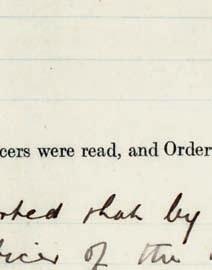 cers were read, and Order
rted that by
icer of the